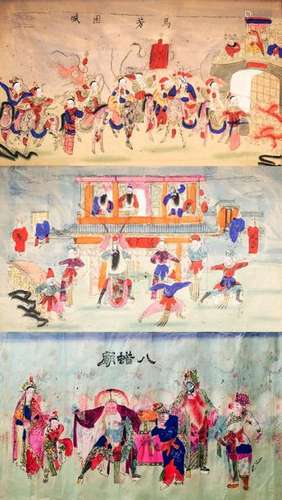 馬芳困城
八蜡廟